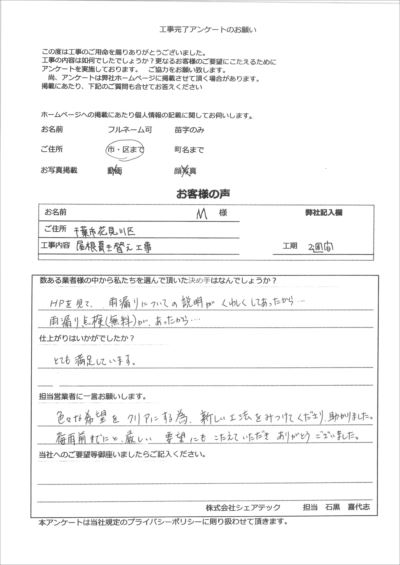 工事完了アンケートのお願い
この度は工事のご用命を賜りありがとうございました。
工事の内容は如何でしたでしょうか？更なるお客様のご要望にこたえるために
アンケートを実施しております。　ご協力をお願い致します。
尚、アンケートは弊社ホームページに掲載させて頂く場合があります。
掲載にあたり、下記のご質問も合せてお答えください
ホームページへの掲載にあたり個人情報の記載に関してお伺いします。
お名前　フルネーム可　苗字のみ
ご住所　市・区まで　町名まで
お写真掲載　動画　顔写真
お客様の声
お名前　M 様　弊社記入欄
ご住所　千葉市花見川区
工事内容　屋根葺き替え工事　工期　2週間
数ある業者様の中から私たちを選んで頂いた決め手はなんでしょうか？
HPを見て、雨漏りについての説明がくわしくしてあったから…
雨漏り点検(無料)が、あったから…
仕上がりはいかがでしたか？
とても満足しています。
担当営業者に一言お願いします。
色々な希望をクリアにする為、新しい工法をみつけてくださり、助かりました。
梅雨前までにと、厳しい要望にもこたえていただきありがとうございました。
当社へのご要望等御座いましたらご記入ください。
株式会社シェアテック　担当　石黒　嘉代志
本アンケートは当社規定のプライバシーポリシーに則り扱わせて頂きます。